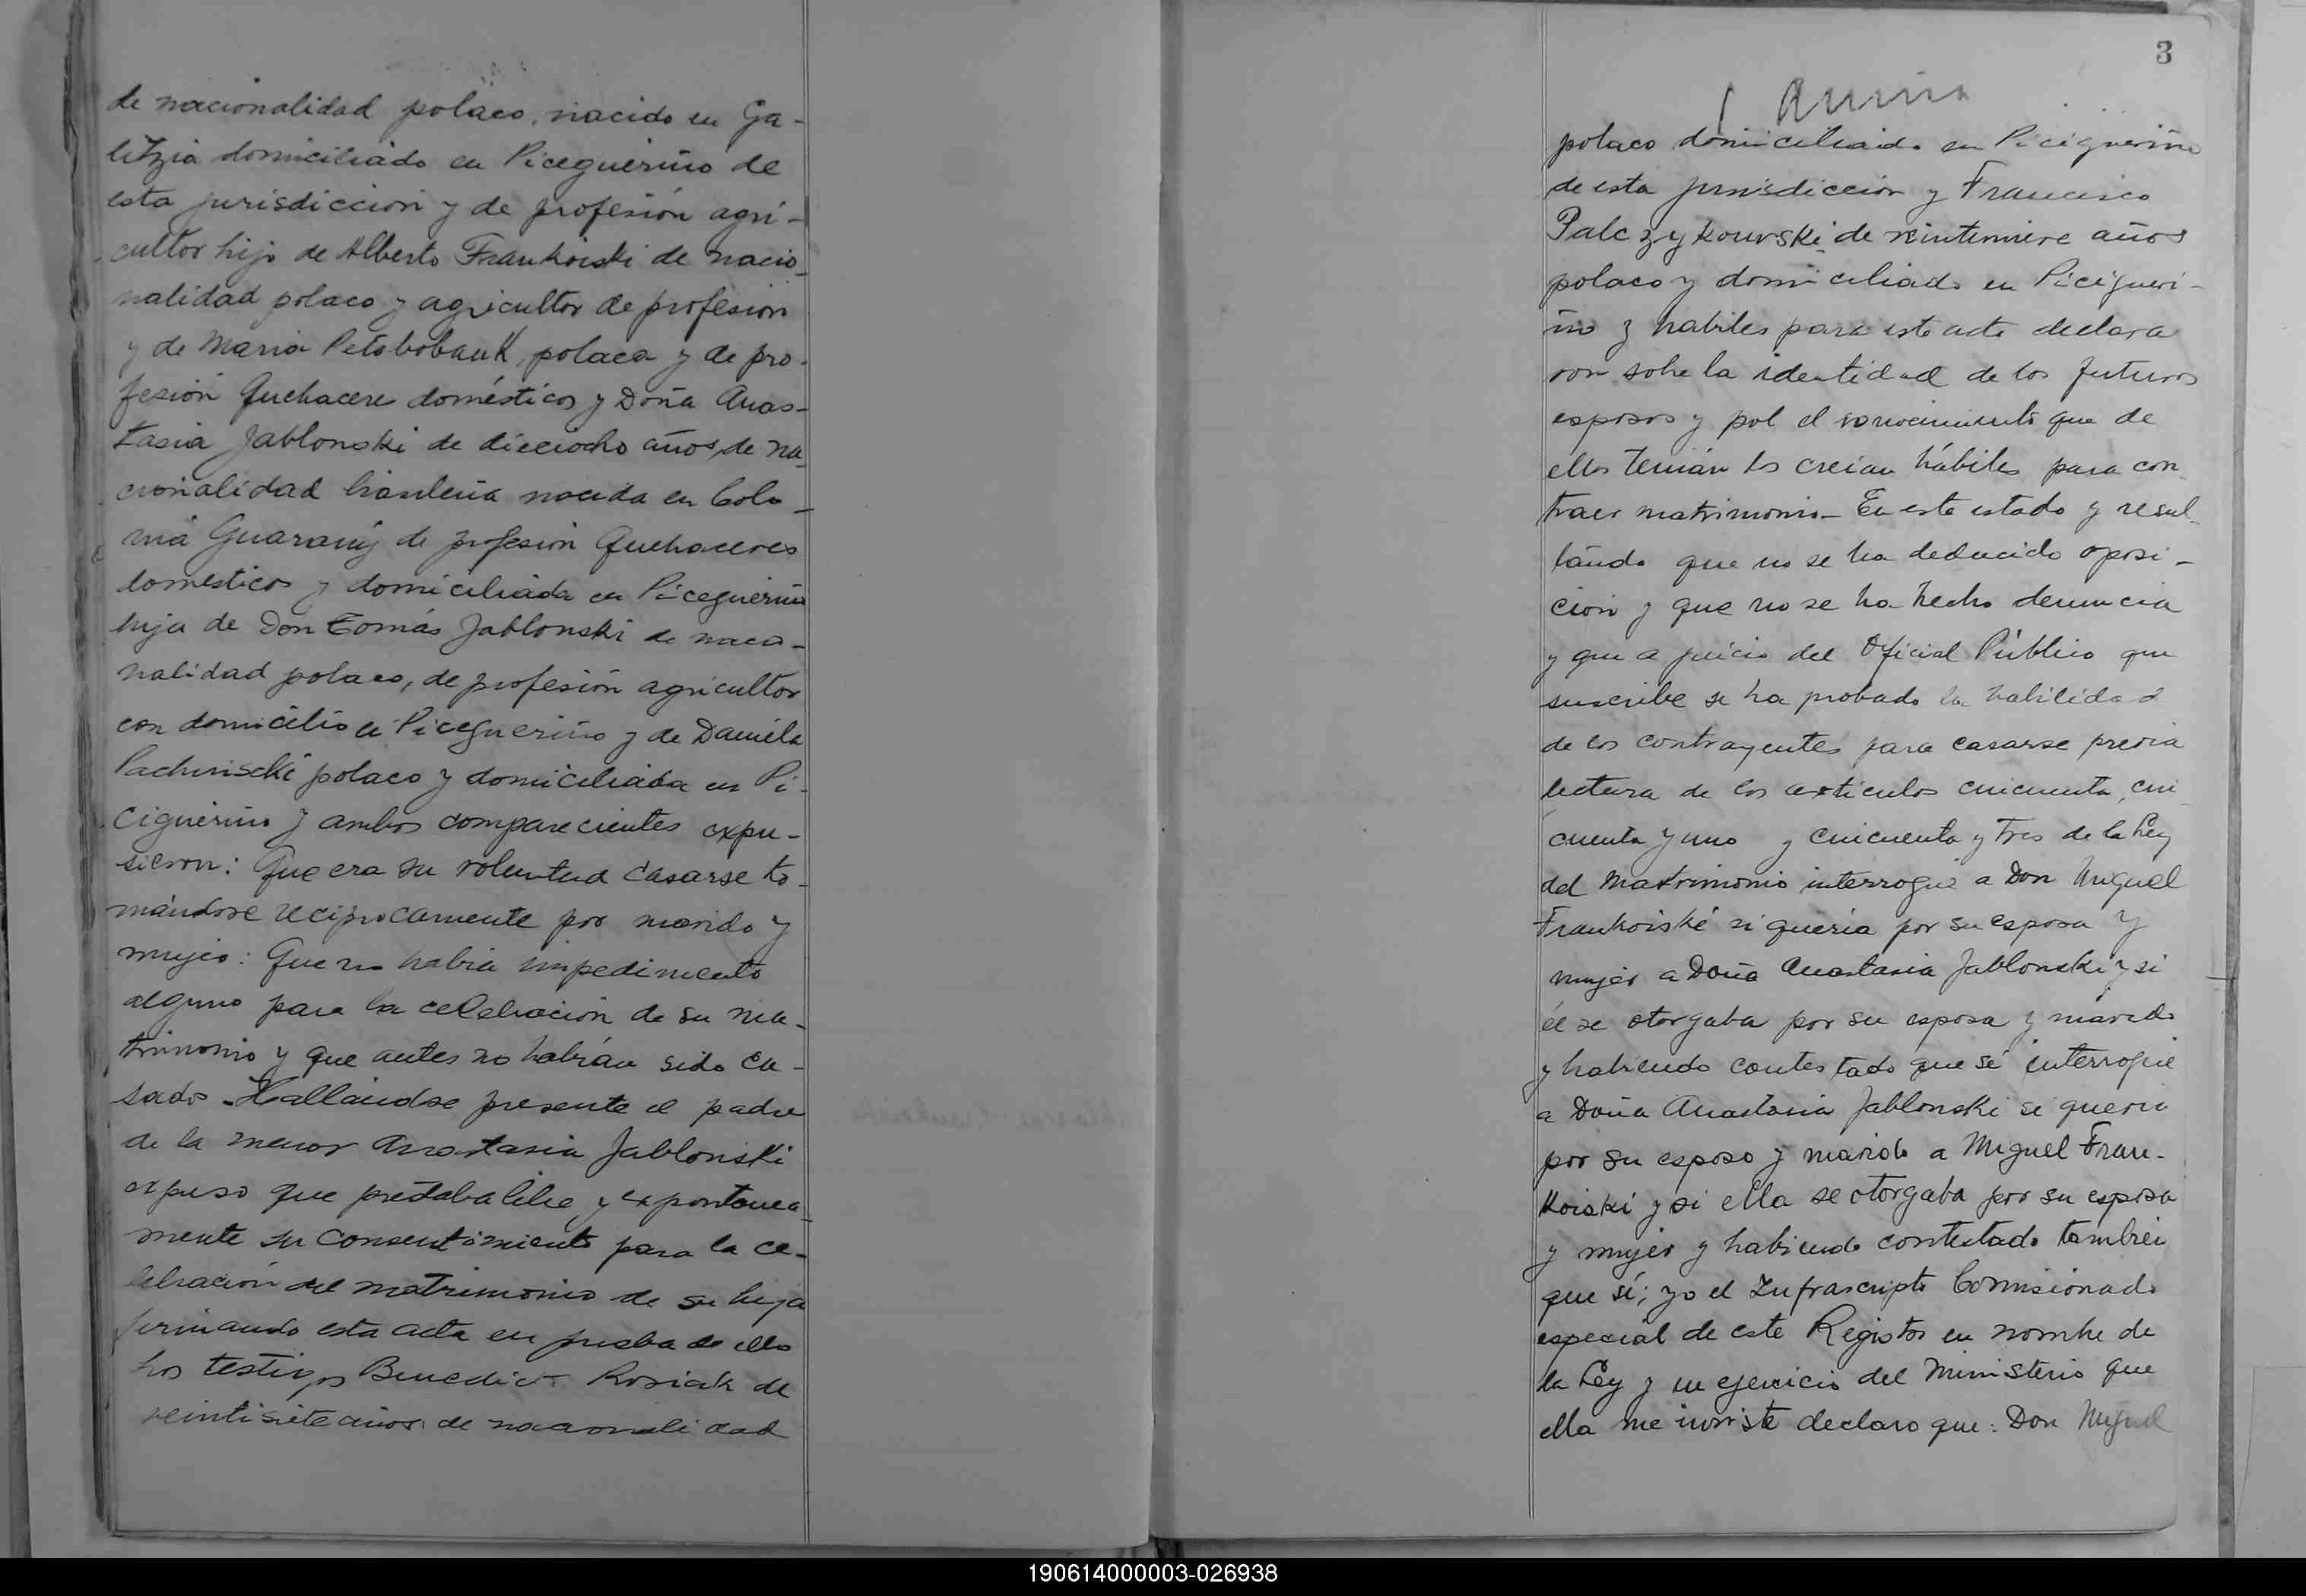 de nacionalidad polaco, nacido en Ga-
litzia domiciliado en Piceguerino de
esta jurisdiccion y de profesión agri-
cultor hijo de Alberto Frankoiski de nacio-
nalidad polaco y agricultor de profesion
y de Maria Petobobauk, polaca y de pro-
fesión Quehacere domésticos y Doña Anas-
tasia Jablonski de dieciocho años, de na-
cionalidad brasileña nacida en Colo-
nia Guarany de profesión Quehaceres
domesticos y domiciliada en Piceguerino
hija de Don Tomás Jablonski de nacio-
nalidad polaco, de profesión agricultor
con domicilio en Piceguerino y de Daniela
polaco y domiciliada en Pi-
ciguerino y ambos comparecientes expu-
sieron: Que era su voluntad casarse to-
mándose reciprocamente por marido y
mujer: Que no habia impedimento
alguno para la celebración de su ma-
trimonio y que antes no habían sido ca-
sados. Hallándose presente el padre
de la menor Anastasia Jablonski
expuso que prestaba libre y expontanea-
mente su consentimiento para la ce-
lebración del matrimonio de su hija
firmando esta acta en prueba de ello
Los testigos Benedict Rosiak de
veintisiete años de nacionalidad
3
polaco domiciliado en Piciguerino
de esta jurisdicción y Francisco
Palczykowski de veintinueve años
polaco y domiciliado en Picigueri-
no y habiles para este acto declara
ron sobre la identidad de los futuros
esposos y pol el conocimiento que de
ellos tenían los creian hábiles para con
traer matrimonio- En este estado y resul-
tando que no se ha deducido oposi-
cion y que no se ha hecho denuncia
y que a juicio del Oficial Público que
suscribe se ha probado la habilidad
de los contrayentes para casarse previa
lectura de los articulos cincuenta, cin
cuenta y uno y cincuenta y tres de la Ley
del Matrimonio interrogué a Don Miguel
Frankoiski si queria por su esposa y
mujer a Doña Anastasia Jablonski y si
él se otorgaba por su esposo y marido
y habiendo contestado que sí interrogué
a Doña Anastasia Jablonski si queria
por su esposo y marido a Miguel Fran-
koiski y si ella se otorgaba por su esposa
y mujer y habiendo contestado tambien
que sí; yo el Infrascripto Comisionado
especial de este Registro en nombre de
la Ley y en ejercicio del Ministerio que
ella me inviste declaro que: Don Miguel
190614000003-026938